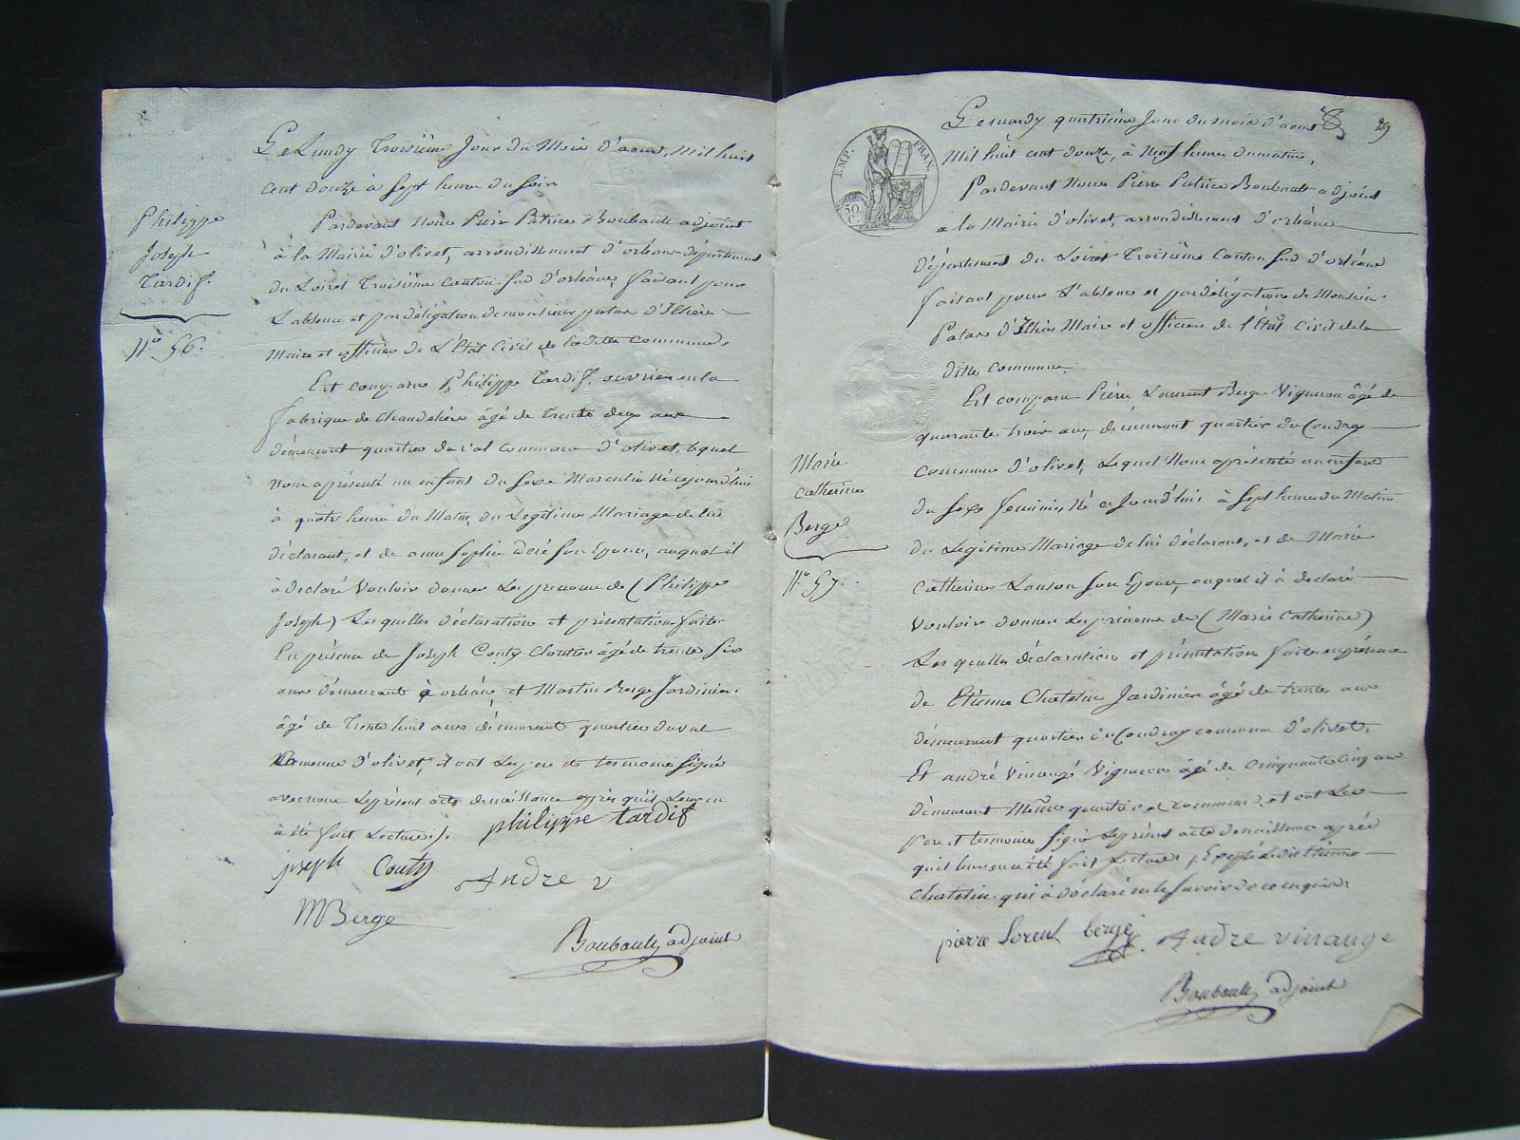 Philippe
Joseph
Tardif.
N.º 56.
Le Lundy Troisième Jour du Mois d'aoust, Mil huit
cent douze à sept heures du soir
Pardevant Nous Pierre Patrice Boubault adjoint
à la Mairie d'olivet, arrondissement d'orléans département
du Loiret Troisième Canton Sud d'orléans, faisant pour
L'absence et par délégation de monsieur patas d'Illiers
Maire et officier de L'État Civil de la ditte Commune.
Est comparu Philippe Tardif, ouvrier en la
fabrique de Chaudelière âgé de Trente deux ans
démeurant quartier du val Commune d'olivet, lequel
nous a présenté un enfant du sexe Masculin né cejourd'hui
à quatre heures du Matin, du Légitime Mariage de lui
déclarant, et de anne Sophie son épouse, auquel il
à déclaré Vouloir donner Les prenoms de (Philippe
Joseph) Les quelles déclarations et présentation faites
En présence de Joseph Couty Cloutier âgé de trente six
ans démeurant à orléans, et Martin Berge Jardinier
âgé de Trente huit ans démeurant quartier du val
Commune d'olivet, et ont Les pere et temoins signé
avec nous Le présent acte de naissance après qu'il Leur en
à été fait Lecture /.
philippe tardif
joseph Couty
Andre v
M Berge
Boubault adjoint
29
Le mardy quatrième Jour du mois d'aoust
Mil huit cent douze, à Neuf heures du matin,
Pardevant Nous Pierre Patrice Boubault adjoint
à la Mairie d'olivet, arrondissement d'orléans
Département du Loiret Troisième Canton Sud d'orléans
faisant pour L'absence et par délégation de Monsieur
Patas d'Illiers Maire et officier de l'État Civil de la
ditte Commune,
EMP. FRAN.
50
Marie
Catherine
Berge
N.º 57.
Est comparu Pierre Laurent Berge Vigneron âgé de
quarante trois ans, démeurant quartier du Coudray
Commune d'olivet, Lequel Nous a présenté un enfant
du sexe féminin, Né ce Jourd'hui à sept heures du Matin
du Légitime Mariage de lui déclarant, et de Marie
Catherine Lanson son épouse, auquel il à déclaré
Vouloir donner Les prénoms de (Marie Catherine)
Les quelles déclaration et présentation faites en présence
de Etienne Chatelin Jardinier âgé de trente ans
démeurant quartier du Coudray commune d'olivet,
Et andré Vinauge Vigneron âgé de Cinquante Cinq ans
démeurant Même quartier et commune, et ont Les
pere et temoins signé Le présent acte de naissance après
qu'il leur en à été fait Lecture, Excepté Ledit Etienne
Chatelin qui à déclaré ne le savoir de ce enquis.
pierre loreut bergé
Andre vinauge
Boubault adjoint